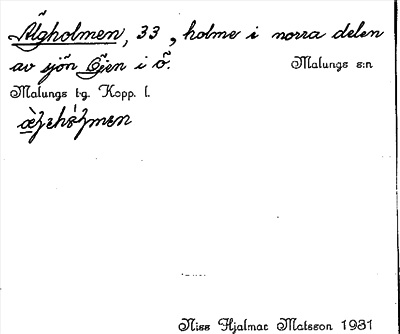 Älgholmen, 33, holme i norra delen
av sjön Öjen i Ö. Malungs s:n
Malungs tg. Kopp. l.
Niss Hjalmar Matsson 1931